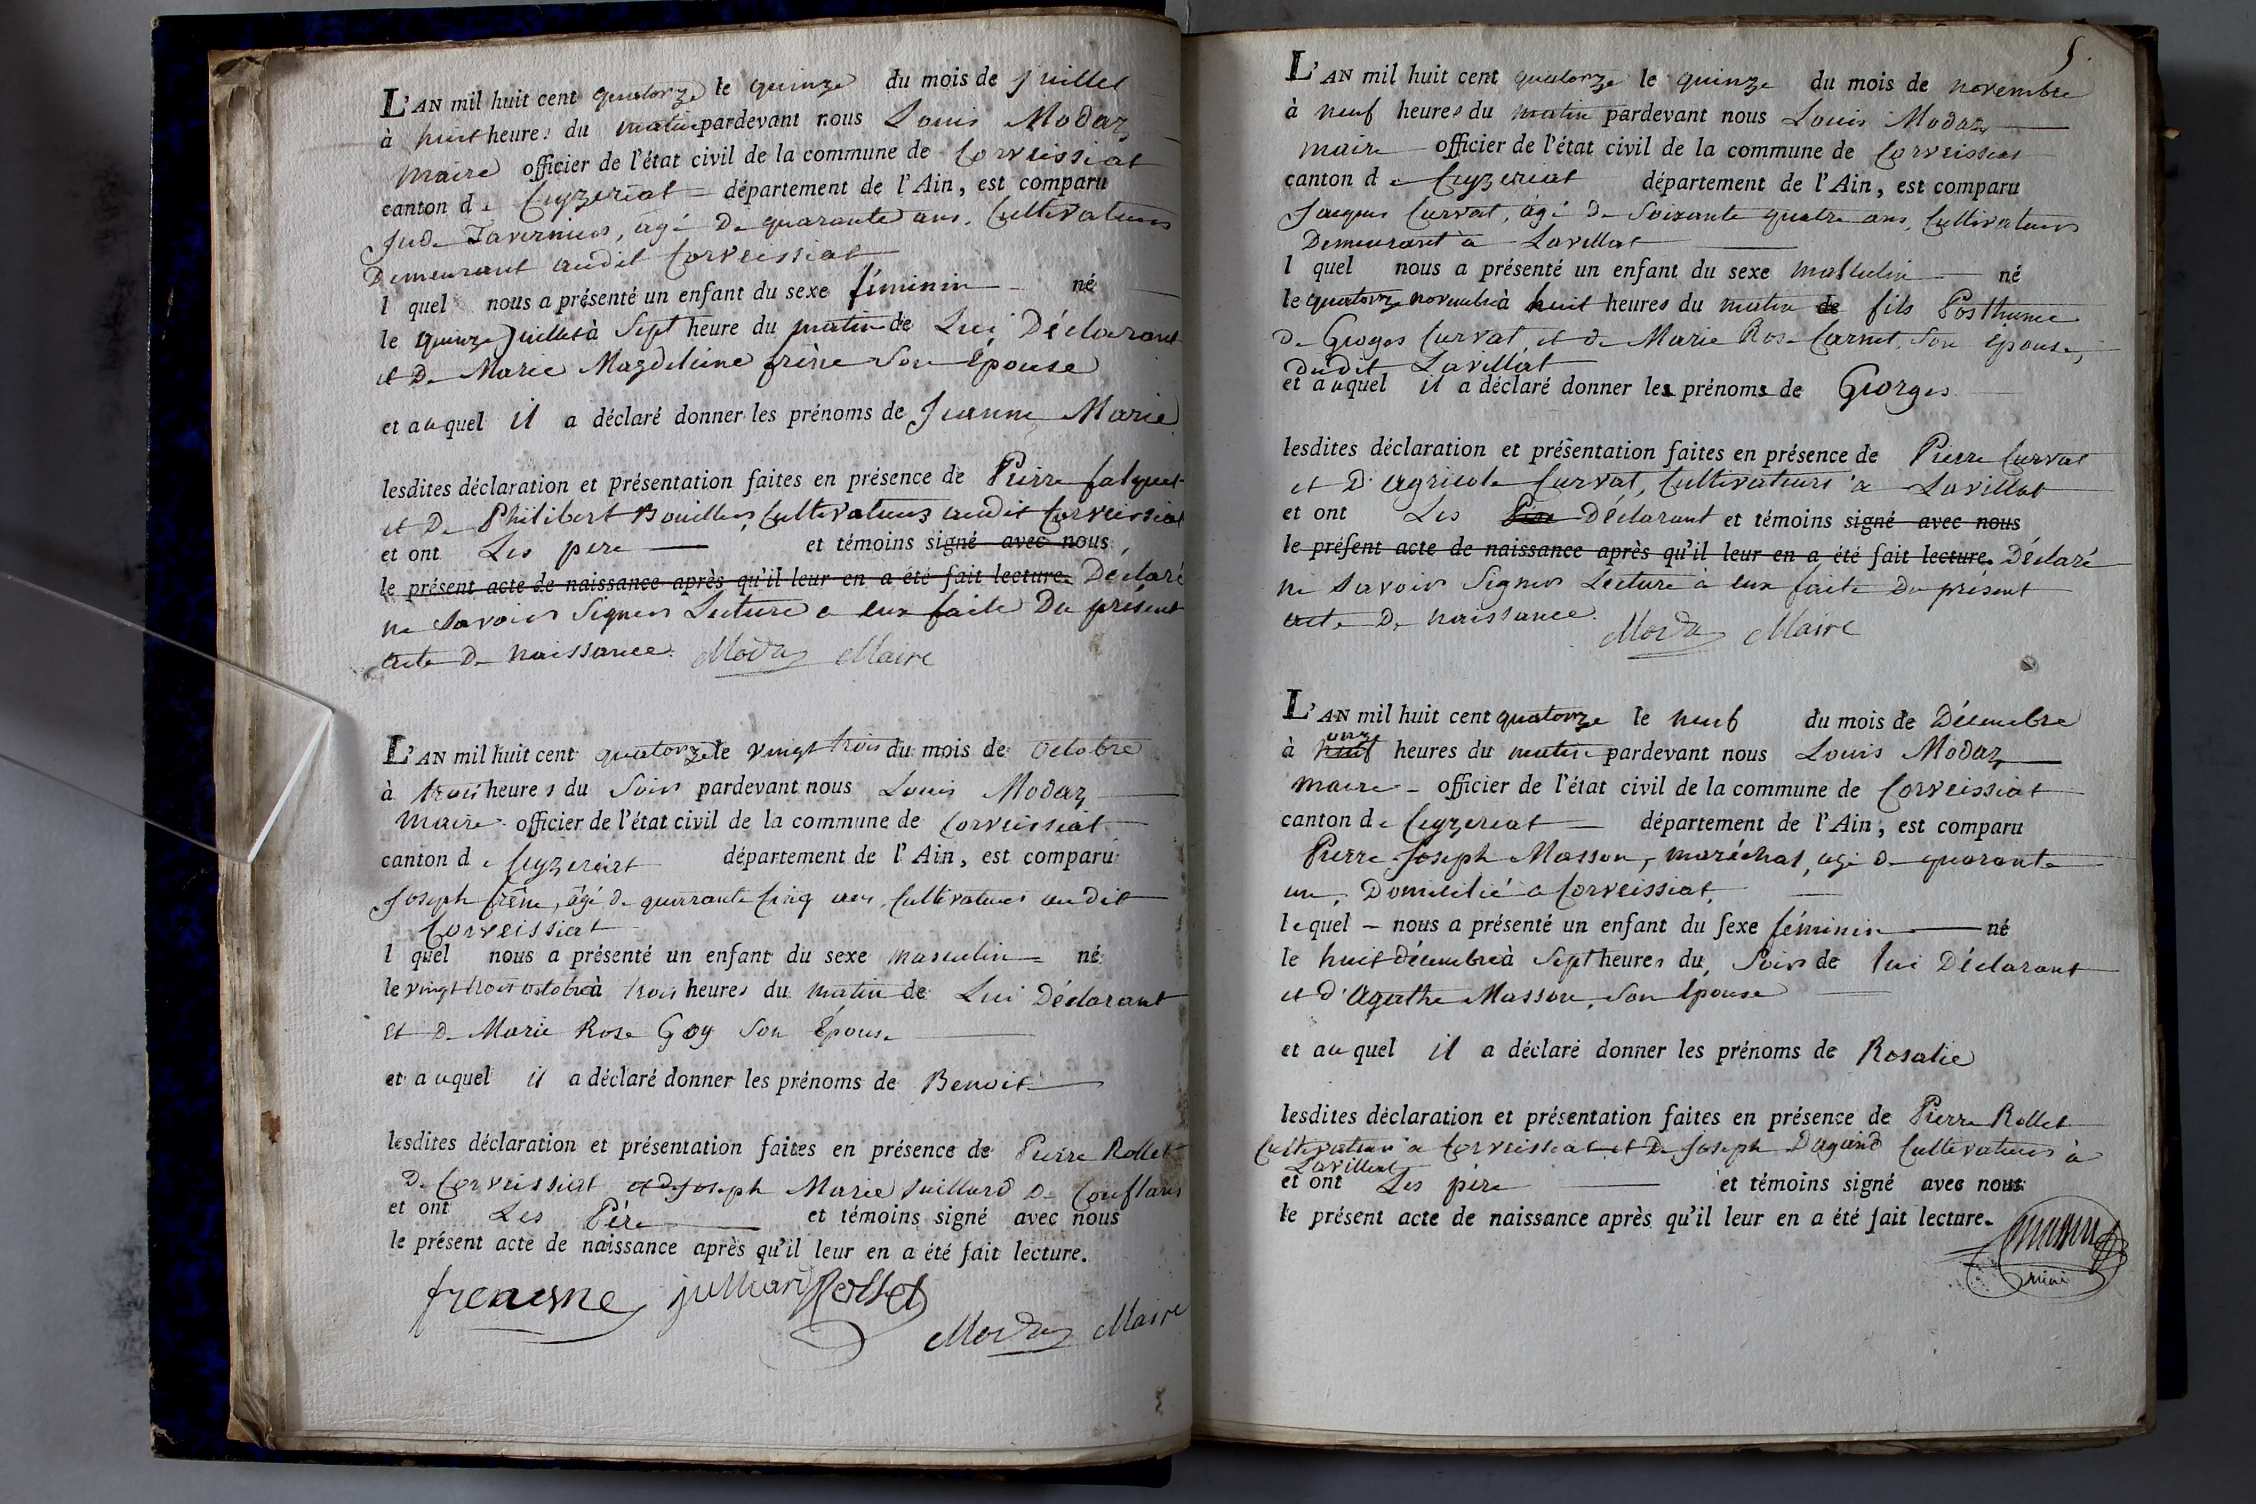 L'AN mil huit cent quatorze le quinze du mois de juillet
à huit heures du matin pardevant nous Louis Modaz
Maire officier de l'état civil de la commune de Corveissiat
canton de Ceyzeriat département de l'Ain, est comparu
Jude Tavernier, agé De quarante ans, Cultivateur
Demeurant audit Corveissiat
l quel nous a présenté un enfant du sexe féminin né
le quinze Juillet à Sept heure du matin de Lui Déclarant
et De Marie Magdeleine frêne Son Epouse
et auquel il a déclaré donner les prénoms de Jeanne Marie
lesdites déclaration et présentation faites en présence de Pierre falquet
et De Philibert Bouiller, Cultivateurs audit Corveissiat
et ont Les pere et témoins signé avec nous
le présent acte de naissance après qu'il leur en a été fait lecture. Déclaré
ne Savoir Signer Lecture a eux faite Du présent
acte De naissance. Modaz Maire
L'AN mil huit cent quatorze le vingt trois du mois de Octobre
à trois heures du Soir pardevant nous Louis Modaz
Maire officier de l'état civil de la commune de Corveissiat
canton de Ceyzeriat département de l'Ain, est comparu
Joseph frêne, âgé de quarante Cinq ans, Cultivateur audit
Corveissiat
l quel nous a présenté un enfant du sexe masculin né
le vingt trois octobre à trois heures du matin de Lui Déclarant
et De Marie Rose Goy Son Epouse
et auquel il a déclaré donner les prénoms de Benoit
lesdites déclaration et présentation faites en présence de Pierre Rollet
De Corveissiat et de Joseph Marie Juillard De Conflans
et ont Les Père et témoins signé avec nous
le présent acte de naissance après qu'il leur en a été fait lecture.
frenesne julliard Rollet
Modaz Maire
5.
L'AN mil huit cent quatorze le quinze du mois de novembre
à neuf heures du matin pardevant nous Louis Modaz
maire officier de l'état civil de la commune de Corveissiat
canton de Ceyzeriat département de l'Ain, est comparu
Jacques Curvat, âgé De Soixante quatre ans, Cultivateur
Demeurant à Lavillat
l quel nous a présenté un enfant du sexe masculin né
le quatorze novembre à huit heures du matin de fils Posthume
De Georges Curvat, et de Marie Rose Carnet, Son épouse,
dudit Lavillat
et auquel il a déclaré donner les prénoms de Georges
lesdites déclaration et présentation faites en présence de Pierre Curvat
et D'agricole Curvat, Cultivateurs à Lavillat
et ont Les Pere Déclarant et témoins signé avec nous
le présent acte de naissance après qu'il leur en a été fait lecture. Déclaré
ne Savoir Signer Lecture à eux faite Du présent
acte De naissance. Modaz Maire
L'AN mil huit cent quatorze le neuf du mois de Décembre
onze
à neuf heures du matin pardevant nous Louis Modaz
maire officier de l'état civil de la commune de Corveissiat
canton de Ceyzeriat département de l'Ain, est comparu
Pierre Joseph Masson, maréchal, agé de quarante
un, Domicilié a Corveissiat,
lequel nous a présenté un enfant du sexe féminin né
le huit décembre à Sept heures du Soir de lui Déclarant
et d'Agathe Masson, Son Epouse
et auquel il a déclaré donner les prénoms de Rosalie
lesdites déclaration et présentation faites en présence de Pierre Rollet
Cultivateur à Corveissiat et De Joseph Dagand Cultivateur à
Lavillat
et ont Les père et témoins signé avec nous
le présent acte de naissance après qu'il leur en a été fait lecture.